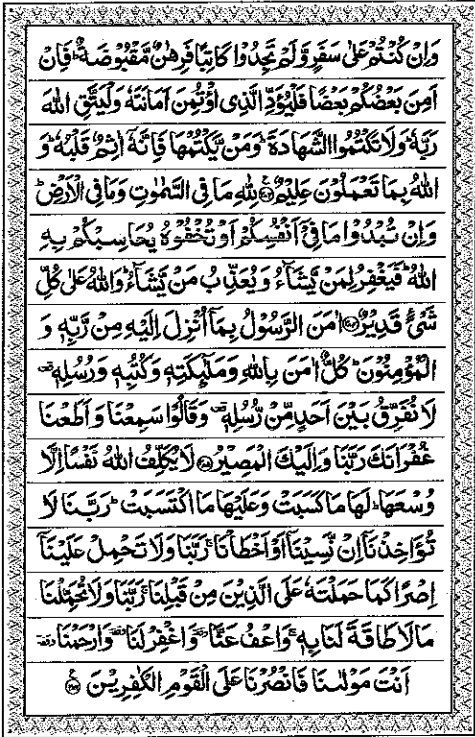 وَاِنْ كُنْتُمْ عَلٰی سَفَرٍ وَّلَمْ تَجِدُوْا كَاتِبًا فَرِهٰنٌ مَّقْبُوْضَةٌ ؕ فَاِنْ
اَمِنَ بَعْضُكُمْ بَعْضًا فَلْیُؤَدِّ الَّذِی اؤْتُمِنَ اَمَانَتَهٗ وَلْیَتَّقِ اللّٰهَ
رَبَّهٗ ؕ وَلَا تَكْتُمُوا الشَّهَادَةَ ؕ وَمَنْ یَّكْتُمْهَا فَاِنَّهٗۤ اٰثِمٌ قَلْبُهٗ ؕ وَ
اللّٰهُ بِمَا تَعْمَلُوْنَ عَلِیْمٌ ۝۲۸۳ لِلّٰهِ مَا فِی السَّمٰوٰتِ وَمَا فِی الْاَرْضِ ؕ
وَاِنْ تُبْدُوْا مَا فِیْۤ اَنْفُسِكُمْ اَوْ تُخْفُوْهُ یُحَاسِبْكُمْ بِهِ
اللّٰهُ ؕ فَیَغْفِرُ لِمَنْ یَّشَآءُ وَیُعَذِّبُ مَنْ یَّشَآءُ ؕ وَاللّٰهُ عَلٰی كُلِّ
شَیْءٍ قَدِیْرٌ ۝۲۸۴ اٰمَنَ الرَّسُوْلُ بِمَاۤ اُنْزِلَ اِلَیْهِ مِنْ رَّبِّهٖ وَ
الْمُؤْمِنُوْنَ ؕ كُلٌّ اٰمَنَ بِاللّٰهِ وَمَلٰٓئِكَتِهٖ وَكُتُبِهٖ وَرُسُلِهٖ ۫
لَا نُفَرِّقُ بَیْنَ اَحَدٍ مِّنْ رُّسُلِهٖ ۫ وَقَالُوْا سَمِعْنَا وَاَطَعْنَا
غُفْرَانَكَ رَبَّنَا وَاِلَیْكَ الْمَصِیْرُ ۝۲۸۵ لَا یُكَلِّفُ اللّٰهُ نَفْسًا اِلَّا
وُسْعَهَا ؕ لَهَا مَا كَسَبَتْ وَعَلَیْهَا مَا اكْتَسَبَتْ ؕ رَبَّنَا لَا
تُؤَاخِذْنَاۤ اِنْ نَّسِیْنَاۤ اَوْ اَخْطَاْنَا ۚ رَبَّنَا وَلَا تَحْمِلْ عَلَیْنَاۤ
اِصْرًا كَمَا حَمَلْتَهٗ عَلَی الَّذِیْنَ مِنْ قَبْلِنَا ۚ رَبَّنَا وَلَا تُحَمِّلْنَا
مَا لَا طَاقَةَ لَنَا بِهٖ ۚ وَاعْفُ عَنَّا ۥ وَاغْفِرْ لَنَا ۥ وَارْحَمْنَا ۥ
اَنْتَ مَوْلٰىنَا فَانْصُرْنَا عَلَی الْقَوْمِ الْكٰفِرِیْنَ ۝۲۸۶